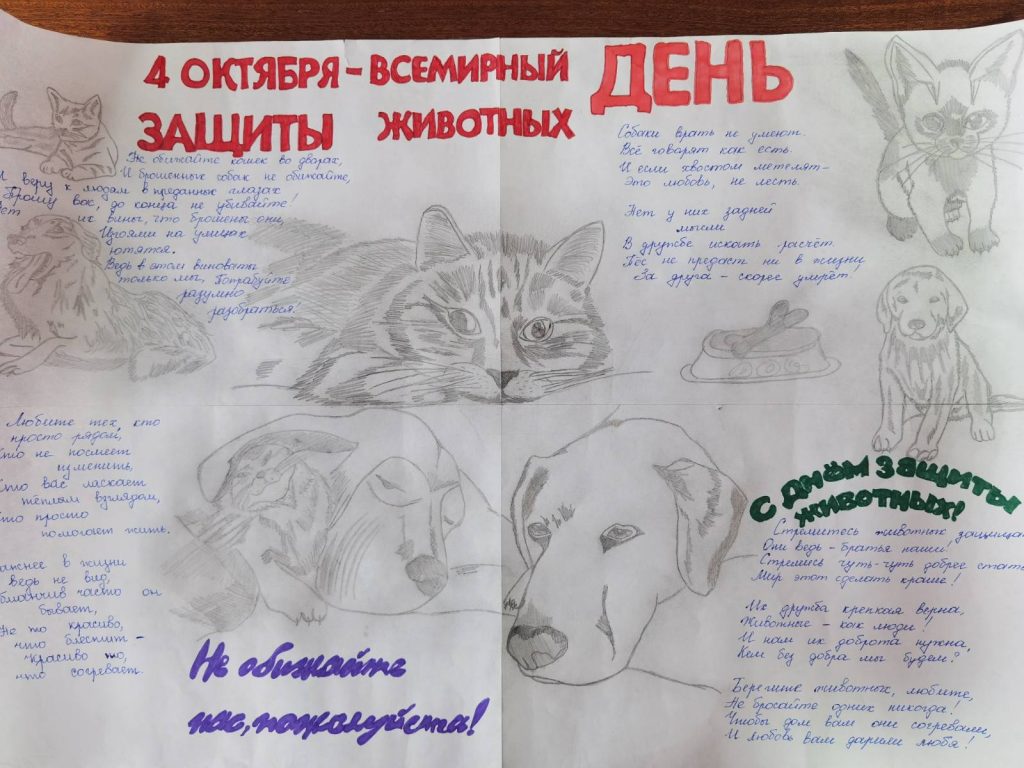 4 ОКТЯБРЯ - ВСЕМИРНЫЙ ДЕНЬ
ЗАЩИТЫ ЖИВОТНЫХ
Не обижайте кошек во дворах,
И брошенных собак не обижайте,
И веру к людям в преданных глазах
Прошу вас, до конца не убивайте!
их вины, что брошены они,
Изгоями на улицах
ютятся.
Ведь в этом виноваты
только мы, Попробуйте
разумно
разобраться!
Собаки врать не умеют.
Всё говорят как есть.
И если хвостом метелят-
Это любовь, не лесть.
Нет у них задней
мысли
В дружбе искать расчёт.
Пёс не предаст ни в жизни
За друга - скорее умрёт!
Любите тех, кто
просто рядом,
Кто не посмеет
изменить,
Кто вас ласкает
тёплым взглядом,
Кто просто
помогает жить.
в жизни
ведь не вид,
часто он
бывает,
Не то красиво,
что блестит -
Красиво то,
что согревает.
С ДНЁМ ЗАЩИТЫ
ЖИВОТНЫХ!
Стремитесь животных
Они ведь - братья наши!
Стремись чуть-чуть добрее
Мир этот сделать краше!
Их дружба крепкая верна,
Животные - как люди!
И нам их доброта нужна,
Кем без добра мы будем?
Берегите животных, любите,
Не бросайте одних никогда!
Чтобы дом вам они согревали,
И любовь вам дарили любя!
Не обижайте
нас, пожалуйста!